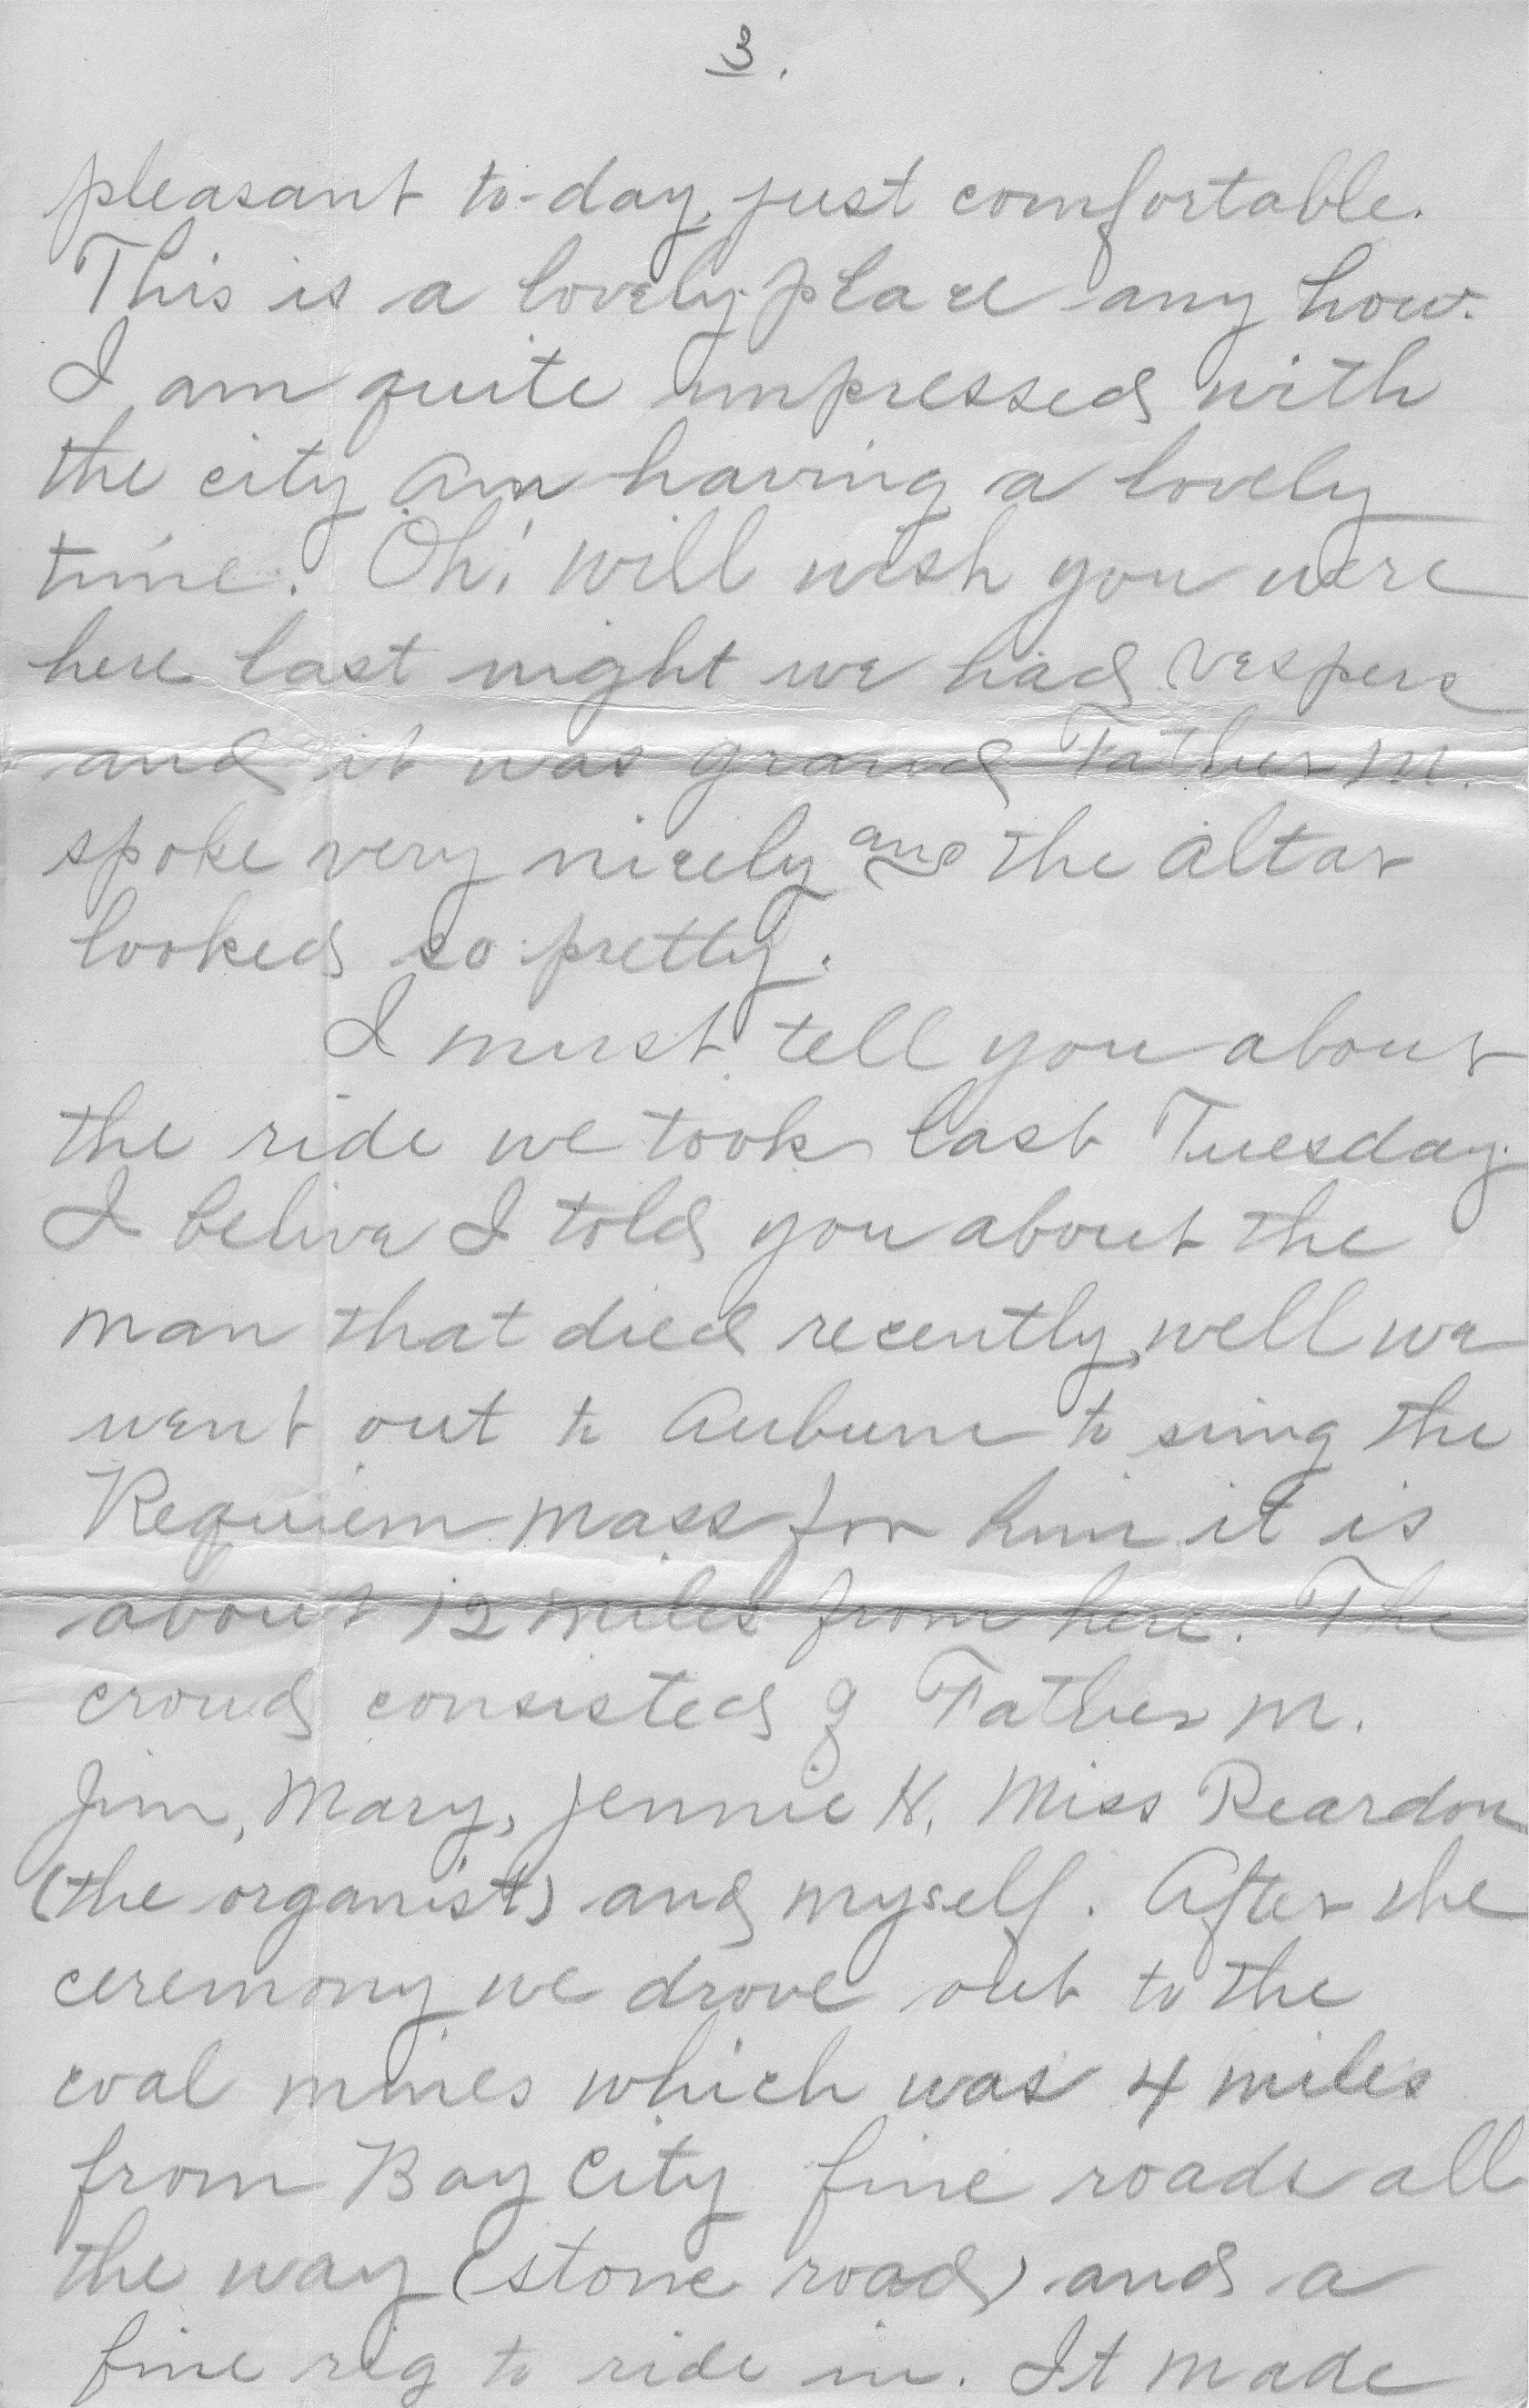 3.
pleasant to-day, just comfortable.
This is a lovely place any how.
I am quite impressed with
the city am having a lovely
time. Oh! Will wish you were
here last night we had Vespers
and it was grand Father M.
spoke very nicely and the altar
looked so pretty.
I must tell you about
the ride we took last Tuesday.
I belive I told you about the
man that died recently, well we
went out to Auburn to sing the
Requiem Mass for him it is
about 12 miles from here. The
croud consisted of Father M.
Jim, Mary, Jennie H. Miss Reardon
(the organist) and myself. After the
ceremony we drove out to the
coal mines which was 4 miles
from Bay City fine roads all
the way (stone road) and a
fine rig to ride in. It made